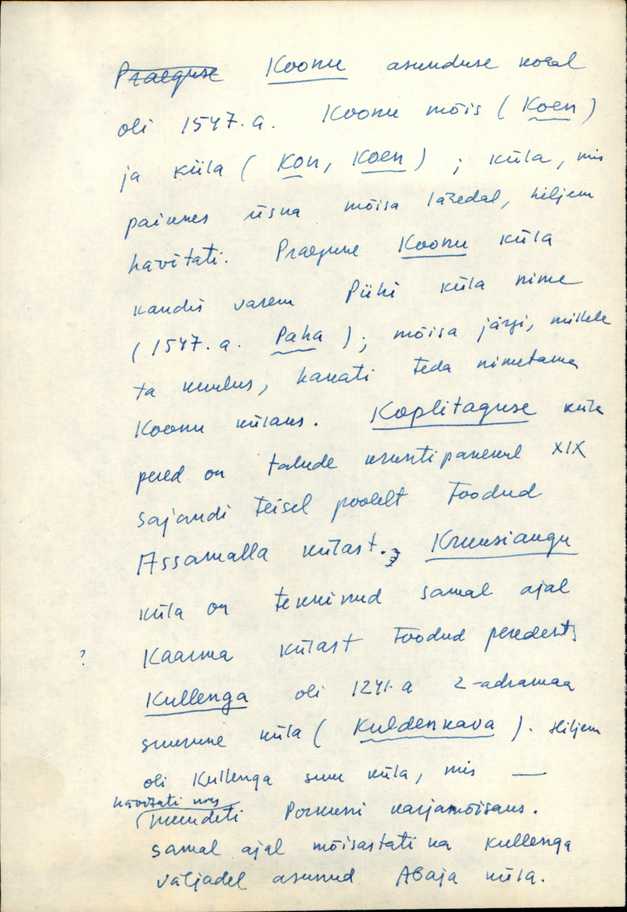 Praeguse Koonu asunduse kohal
oli 1547. a. Koonu mõis (Koen)
ja küla (Kon, Koen); küla, mis
paiknes üsna mõisa lähedal, hiljem
hävitati. Praegune Koonu küla
kandis varem Pühi küla nime
(1547. a. Paha); mõisa järgi, millele
ta kuulus, hakati teda nimetama
Koonu külaks. Koplitaguse küla
pered on talude kruntipanekul XIX
sajandi teisel poolelt toodud
Assamalla külast. Kruusiaugu
küla on tekkinud samal ajal
? Kaarma külast toodud peredest.
Kullenga oli 1241. a 2-adramaa
suurune küla (Kuldenkava). Hiljem
oli Kullenga suur küla, mis —
hävitati
muudeti Porkuni karjamõisaks.
Samal ajal mõisastati ka Kullenga
väljadel asunud Abaja küla.